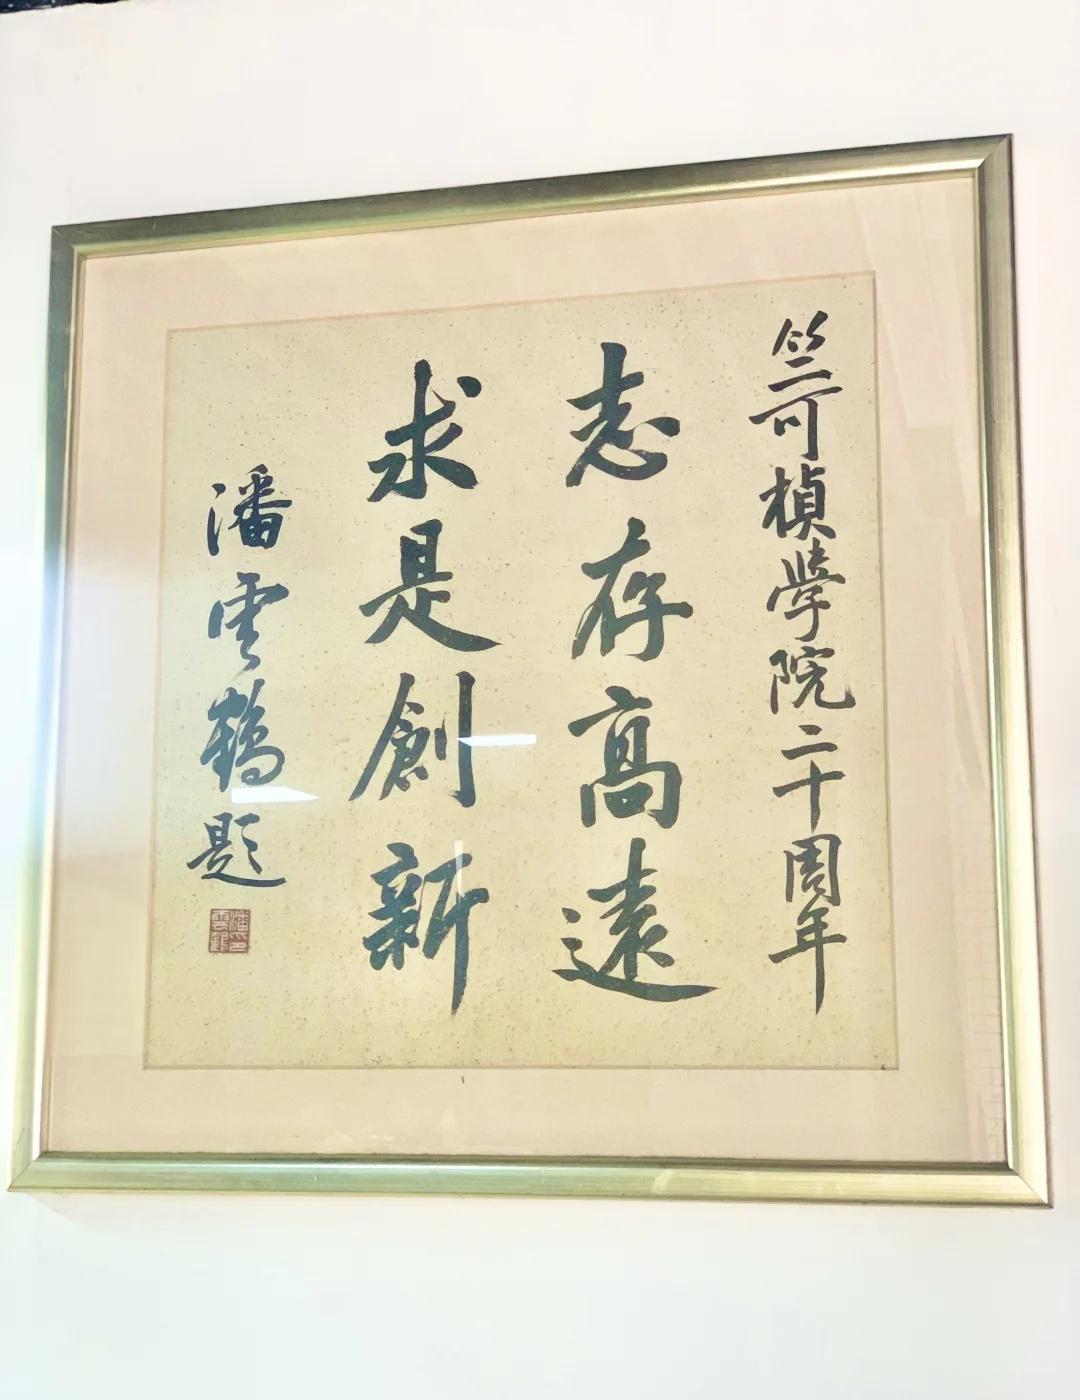 竺可楨學院二十周年
志存高遠
求是創新
潘雲鶴題
潘雲鶴印